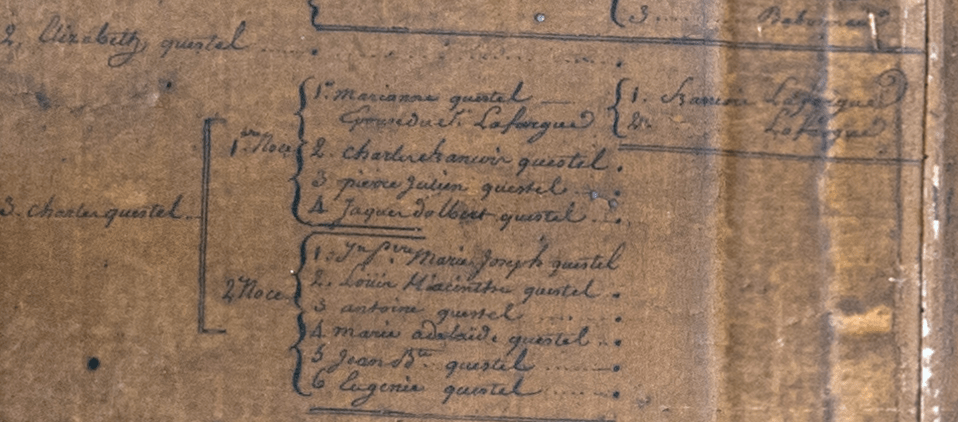 3 .....
2. Elizabeth questel ......
1. marianne questel
Epouse du Sr. Lafargue
1. Lafargue
2. Lafargue
1ere Noce
2. charles francois questel.
3 pierre Julien questel ....
4 Jaques dalbert questel ....
3. charles questel.
Marie Joseph questel
2e Noce
2. Louis Hiacinthe questel .
3 antoine questel .....
4. marie adelaide questel ..
5 Jean Bte. questel ......
6 Eugenie questel ......